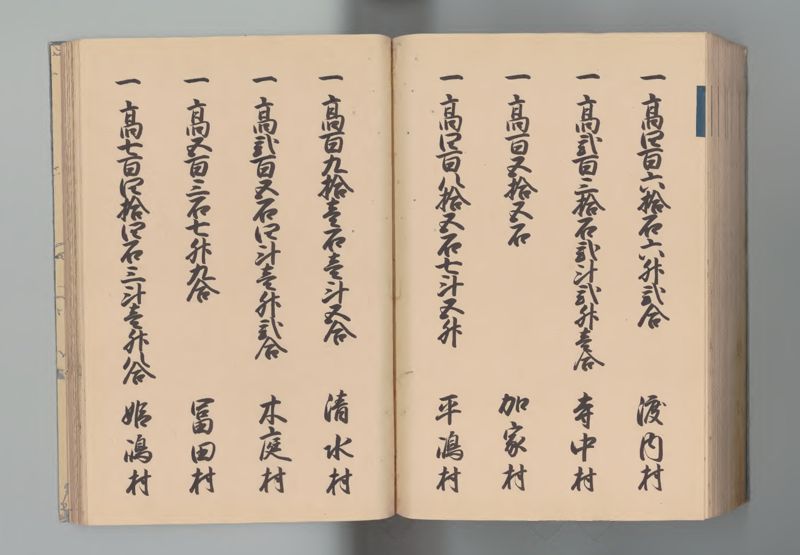 一高四百六拾石六升弐合 渡内村
一高弐百三拾石弐斗弐升壱合 寺中村
一高百五拾五石 加家村
一高四百八拾五石七斗五升 平嶋村
一高百九拾壱石壱斗五合 清水村
一高弐百五石四斗壱升弐合 木庭村
一高五百三石七升九合 冨田村
一高七百四拾四石三斗壱升八合 姫嶋村